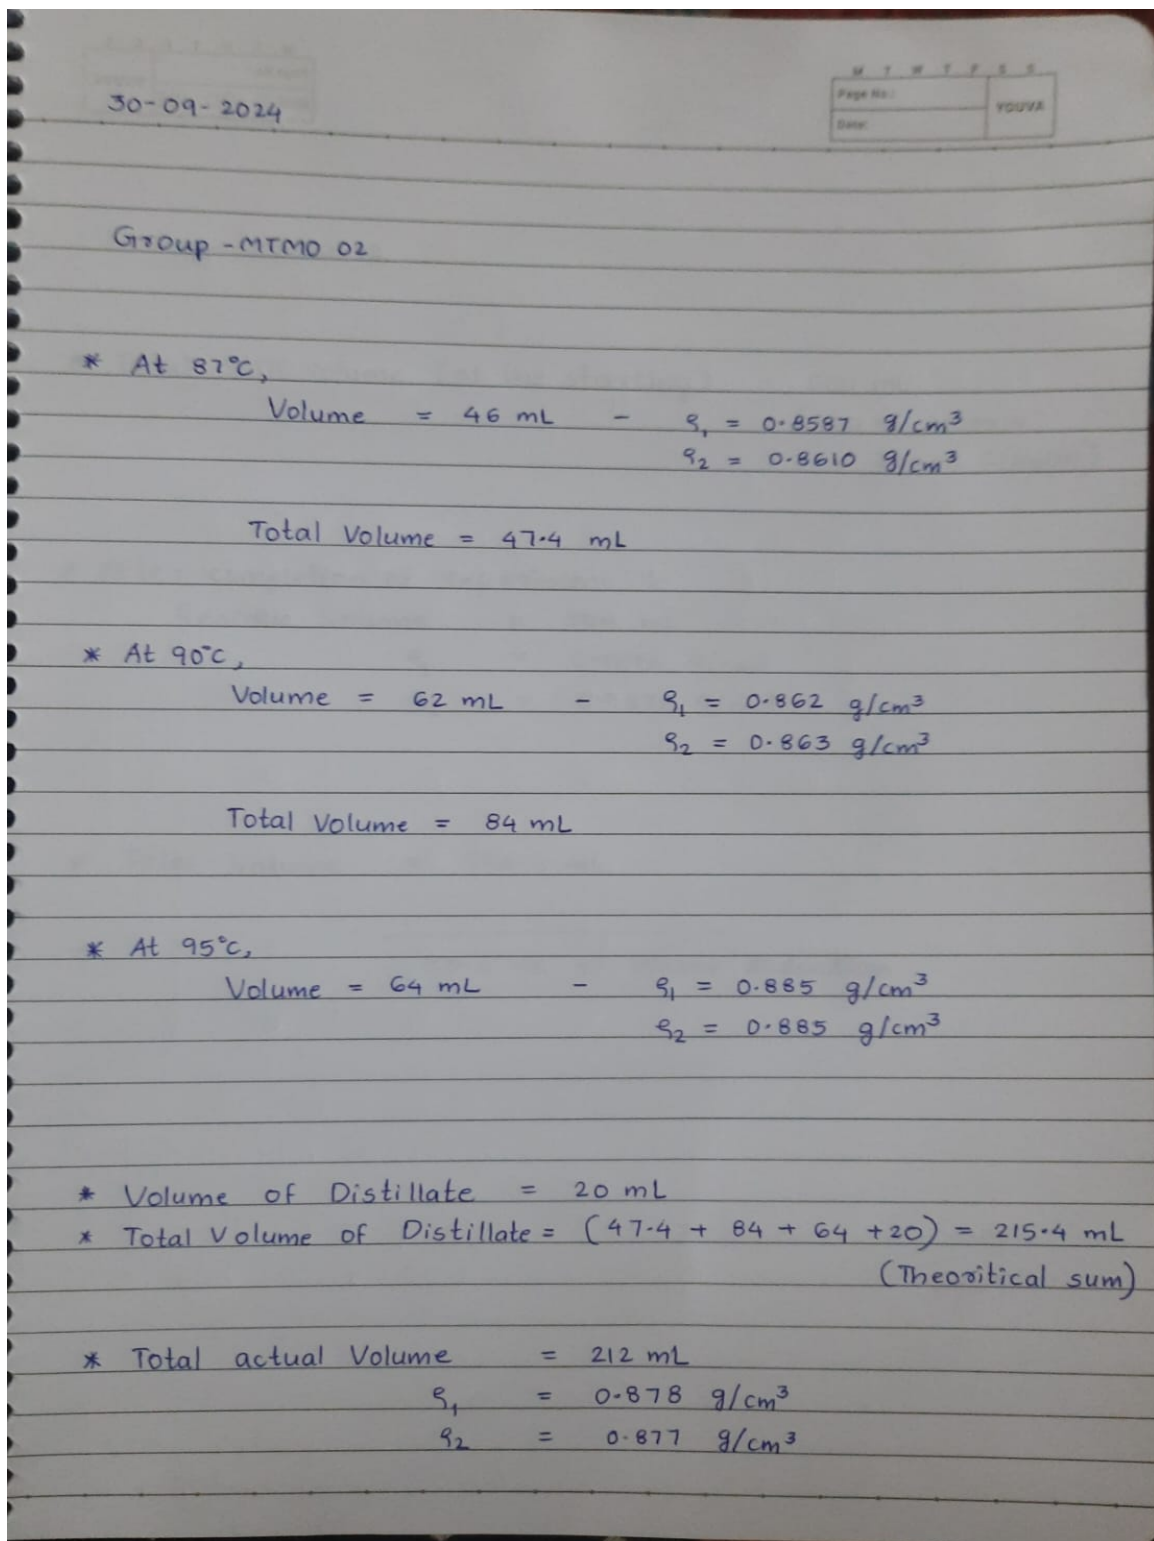 M T W T F S S
Page No.:
YOUVA
Date:
30-09-2024
Group - MTMO 02
* At 87°C,
Volume = 46 mL - ρ₁ = 0.8587 g/cm³
ρ₂ = 0.8610 g/cm³
Total Volume = 47.4 mL
* At 90°C,
Volume = 62 mL - ρ₁ = 0.862 g/cm³
ρ₂ = 0.863 g/cm³
Total Volume = 84 mL
* At 95°C,
Volume = 64 mL - ρ₁ = 0.885 g/cm³
ρ₂ = 0.885 g/cm³
* Volume of Distillate = 20 mL
* Total Volume of Distillate = (47.4 + 84 + 64 + 20) = 215.4 mL
(Theoritical sum)
* Total actual Volume = 212 mL
ρ₁ = 0.878 g/cm³
ρ₂ = 0.877 g/cm³